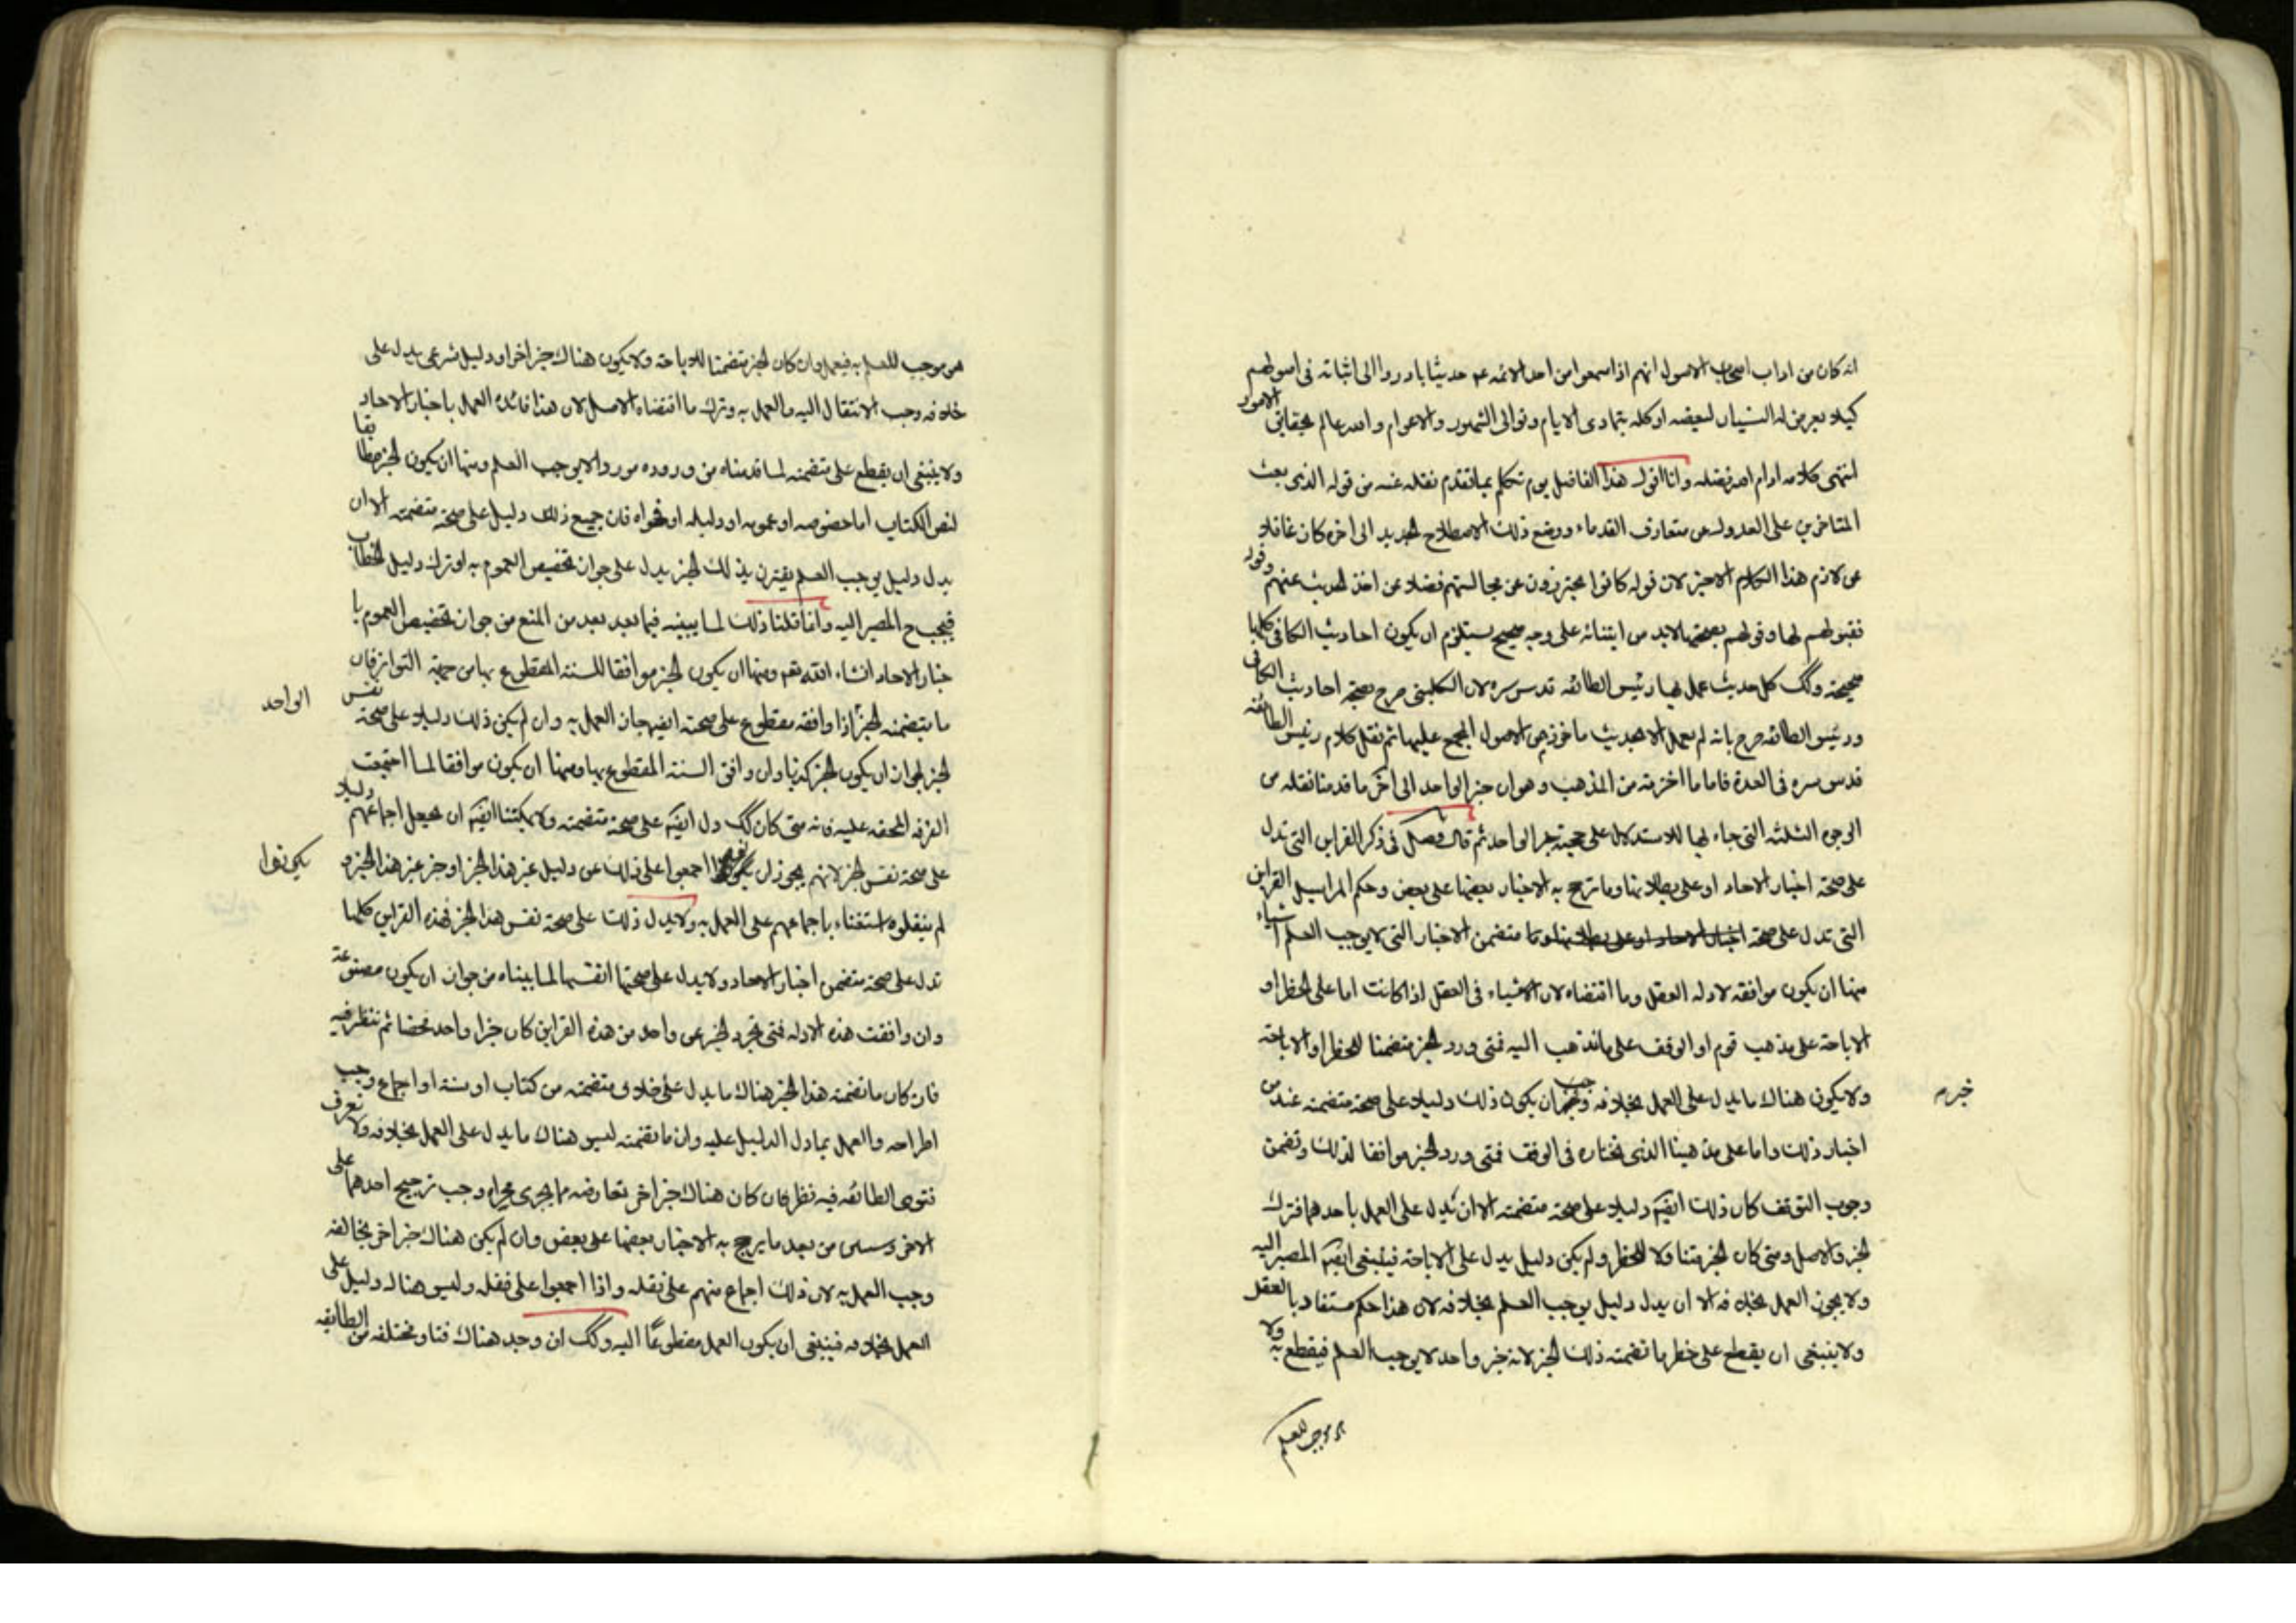 انه كان من اداب اصحاب الاصول انهم اذا سمعوا من احد الائمه عم حديثا بادروا الى اثباته فى اصولهم
كيلا يعرض له النسيان لبعضه او كله بتمادى الايام وتوالى الشهور والاعوام والله عالم بحقايق الامور
انتهى كلامه ادام الله فضله وانا اقول هذا الفاضل يوم تكلم بما تقدم نقله عنه من قوله الذى بعث
المتاخرين على العدول عن متعارف القدماء ووضع ذلك الاصطلاح الجديد الى اخره كان غافلا
عن لازم هذا الكلام الاخير لان قوله كانوا يحترزون عن مجالستهم فضلا عن اخذ الحديث عنهم وقوله
فقبولهم لها وقولهم بصحتها لابد من ابتنائه على وجه صحيح يستلزم ان يكون احاديث الكافى كلها
صحيحة وكك كل حديث عمل بها رئيس الطائفه قدس سره لان الكلينى صرح بصحة احاديث الكافى
ورئيس الطائفه صرح بانه لم يعمل الا بحديث ماخوذ من الاصول المجمع عليها ثم نقل كلام رئيس الطائفه
قدس سره فى العدة فاما ما اخترته من المذهب وهو ان خبر الواحد الى اخر ما قدمنا نقله من
الوجوه الثلثه التى جاء بها للاستدلال على حجية خبر الواحد ثم قال فصل فى ذكر القراين التى تدل
على صحة اخبار الاحاد او على بطلانها وما ترجح به الاخبار بعضها على بعض وحكم المراسيل القراين
التى تدل على صحة متضمن الاخبار التى لا يوجب العلم اشياء
منها ان يكون موافقه لادله العقل وما اقتضاه لان الاشياء فى العقل اذا كانت اما على الحظر او
الاباحة على مذهب قوم او الوقف على ما نذهب اليه فمتى ورد الخبر متضمنا للحظر او الاباحة
ولا يكون هناك ما يدل على العمل بخلافه وجب ان يكون ذلك دليلا على صحة متضمنه عند من
اختار ذلك واما على مذهبنا الذى نختاره فى الوقف فمتى ورد الخبر موافقا لذلك وتضمن
وجوب التوقف كان ذلك ايضا دليلا على صحة متضمنه الا ان يدل على العمل باحدهما فترك
الخبر والاصل ومتى كان الخبر متناولا للحظر ولم يكن دليل يدل على الاباحة فينبغى ايضا المصير اليه
ولا يجوز العمل بخلافه الا ان يدل دليل يوجب العلم بخلافه لان هذا حكم مستفاد بالعقل
ولا ينبغى ان يقطع على حظر ما تضمنه ذلك الخبر لانه خبر واحد لا يوجب العلم فيقطع به ولا
هو موجب للعلم
هو موجب للعلم به فيعمل وان كان الخبر متضمنا للاباحة ولا يكون هناك خبر اخر او دليل شرعى يدل على
خلافه وجب الانتقال اليه والعمل به وترك ما اقتضاه الاصل لان هذا فائدة العمل باخبار الاحاد
ولا ينبغى ان يقطع على متضمنه لما قدمناه من وروده موردا لا يوجب العلم ومنها ان يكون الخبر مطابقا
لنص الكتاب اما خصوصه او عمومه او دليله او فحواه فان جميع ذلك دليل على صحة متضمنه الا ان
يدل دليل يوجب العلم يقترن بذلك الخبر يدل على جواز تخصيص العموم به او ترك دليل الخطاب
فيجب ح المصير اليه وانما قلنا ذلك لما يبينه فيما بعد بعد من المنع من جواز تخصيص العموم با
خبار الاحاد انشاء الله تعم ومنها ان يكون الخبر موافقا للسنة المقطوع بها من جهة التواتر فان
ما يتضمنه الخبر اذا وافقه مقطوع على صحته ايضا جاز العمل به وان لم يكن ذلك دليلا على صحة نفس
الواحد
الخبر لجواز ان يكون الخبر كذبا وان وافق السنة المقطوع بها ومنها ان يكون موافقا لما اجتمعت
الفرقه المحقه عليه فانه متى كان كك دل ايضا على صحة متضمنه ولا يمكننا ايضا ان نجعل اجماعهم دليلا
على صحة نفس الخبر لانهم يجوز ان اجمعوا على ذلك عن دليل غير هذا الخبر او خبر غير هذا الخبر و
يكونوا
لم ينقلوه استغناء باجماعهم على العمل به ولا يدل ذلك على صحة نفس هذا الخبر فهذه القراين كلها
تدل على صحة متضمن اخبار الاحاد ولا يدل على صحتها انفسها لما بيناه من جواز ان يكون مصنوعة
وان وافقت هذه الادله فمتى تجرد الخبر عن واحد من هذه القراين كان خبرا واحد محضا ثم ننظر فيه
فان كان ما تضمنه هذا الخبر هناك ما يدل على خلاف متضمنه من كتاب او سنة او اجماع وجب
اطراحه والعمل بما دل الدليل عليه وان ما تضمنه ليس هناك ما يدل على العمل بخلافه ولا نعرف
فتوى الطائفه فيه نظر فان كان هناك خبر اخر تعارضه مما يجرى مجراه وجب ترجيح احدهما على
الاخر من بعد ما يرجح به الاخبار بعضها على بعض وان لم يكن هناك خبر اخر يخالفه
وجب العمل به لان ذلك اجماع منهم على نقله واذا اجمعوا على نقله وليس هناك دليل على
العمل بخلافه فينبغى ان يكون العمل مقطوعا اليه وكك ان وجد هناك فتاو مختلفه من الطايفه